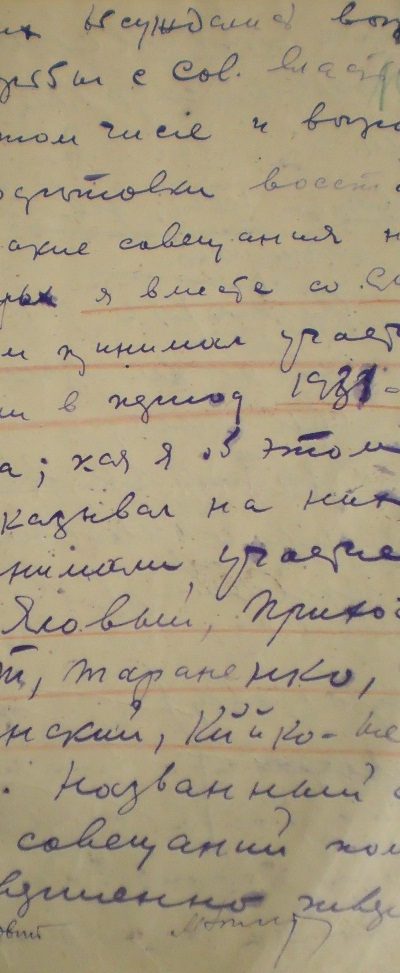 их обсуждалис воз
рьбы с Сов. власт
том числе и возм
одготовки восст
акие совещания н
рых я вместе со
м принимал участ
ли в период 1931-
а; как я об этом
казывал на них
нимали участие
Яловый, Прихо
т, Тараненко,
нский, Кийко-Ше
. Названный
совещаний но